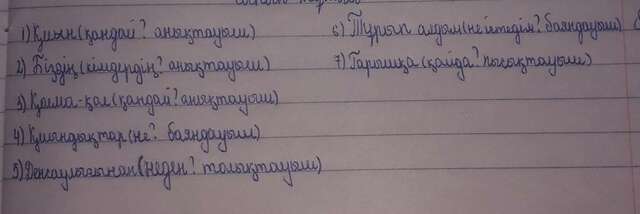 1) Қиын (қандай? анықтауыш)
2) Біздің (кімдердің? анықтауыш)
3) Қыма-қал (қандай? анықтауыш)
4) Қиындықтар (не? баяндауыш)
5) Денсаулығынан (неден? толықтауыш)
6) Тұрып алдым (не істедім? баяндауыш)
7) Ғарышқа (қайда? пысықтауыш)